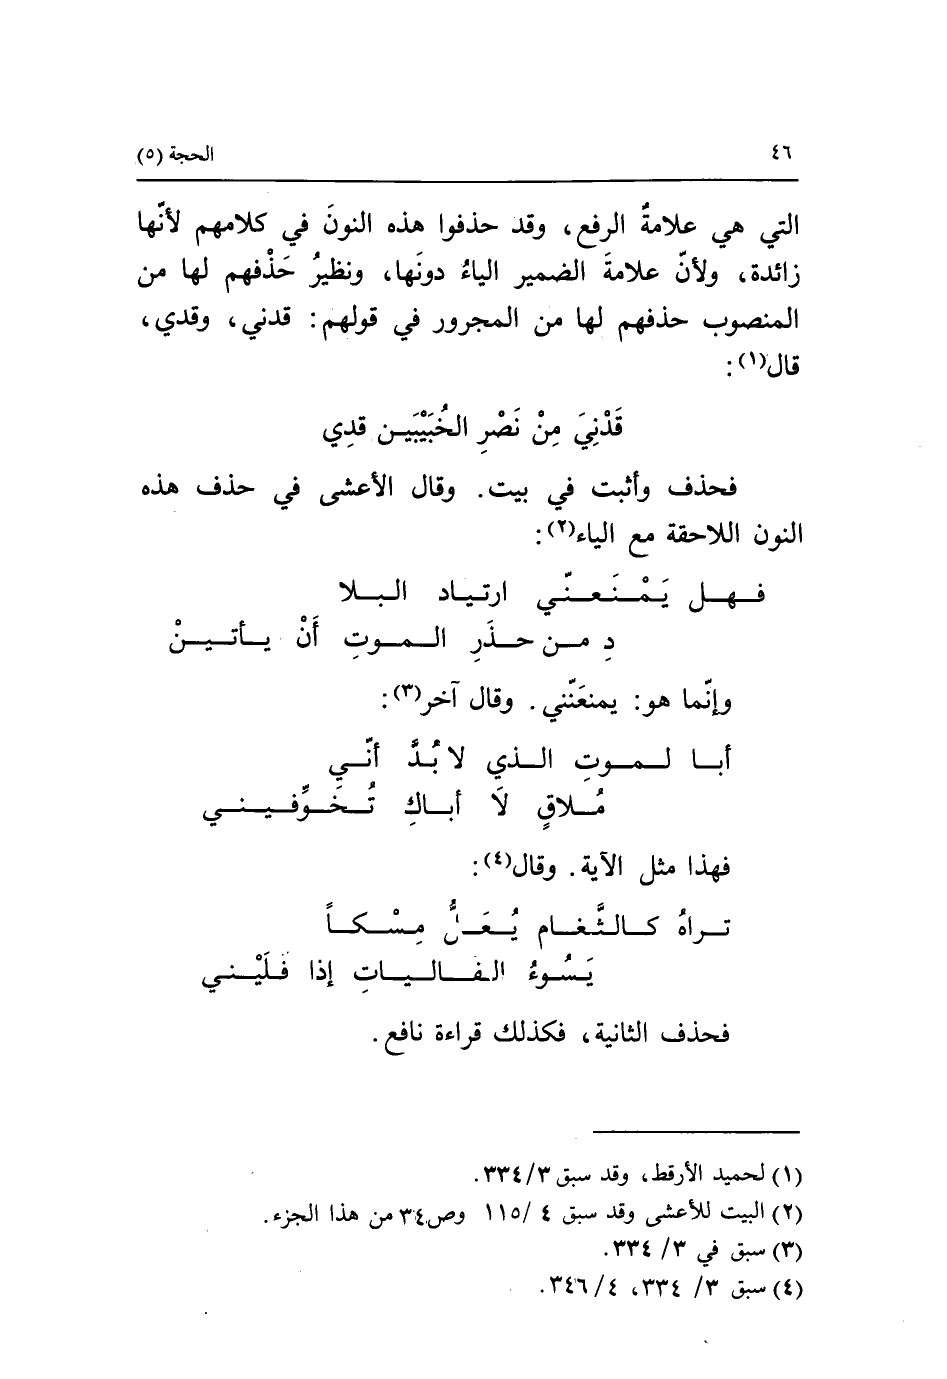 ٤٦ الحجة (٥)
التي هي علامةُ الرفع، وقد حذفوا هذه النونَ في كلامهم لأنّها
زائدة، ولأنّ علامةَ الضمير الياءُ دونَها، ونظيرُ حَذْفهم لها من
المنصوب حذفهم لها من المجرور في قولهم: قدني، وقدي،
قال(١):
قَدْنِيَ مِنْ نَصْرِ الخُبَيْبَيـن قدِي
فحذف وأثبت في بيت. وقال الأعشى في حذف هذه
النون اللاحقة مع الياء(٢):
فـهـل يَـمْـنَـعـنّـي ارتـيـاد الـبـلا
دِ مـن حـذَرِ الـمـوتِ أَنْ يـأتـيـنْ
وإنّما هو: يمنعَنّني. وقال آخر(٣):
أبـا لـمـوتِ الـذي لا بُدَّ أنّـي
مُـلاقٍ لَا أبـاكِ تُـخَـوِّفـيـنـي
فهذا مثل الآية. وقال(٤):
تـراهُ كـالـثَّـغـام يُـعَـلُّ مِـسْـكـاً
يَـسُـوءُ الـفـالـيـاتِ إذا فَـلَيْـنـي
فحذف الثانية، فكذلك قراءة نافع.
(١) لحميد الأرقط، وقد سبق ٣٣٤/٣.
(٢) البيت للأعشى وقد سبق ٤ /١١٥ وص٣٤ من هذا الجزء.
(٣) سبق في ٣/ ٣٣٤.
(٤) سبق ٣/ ٣٣٤، ٤/ ٣٤٦.